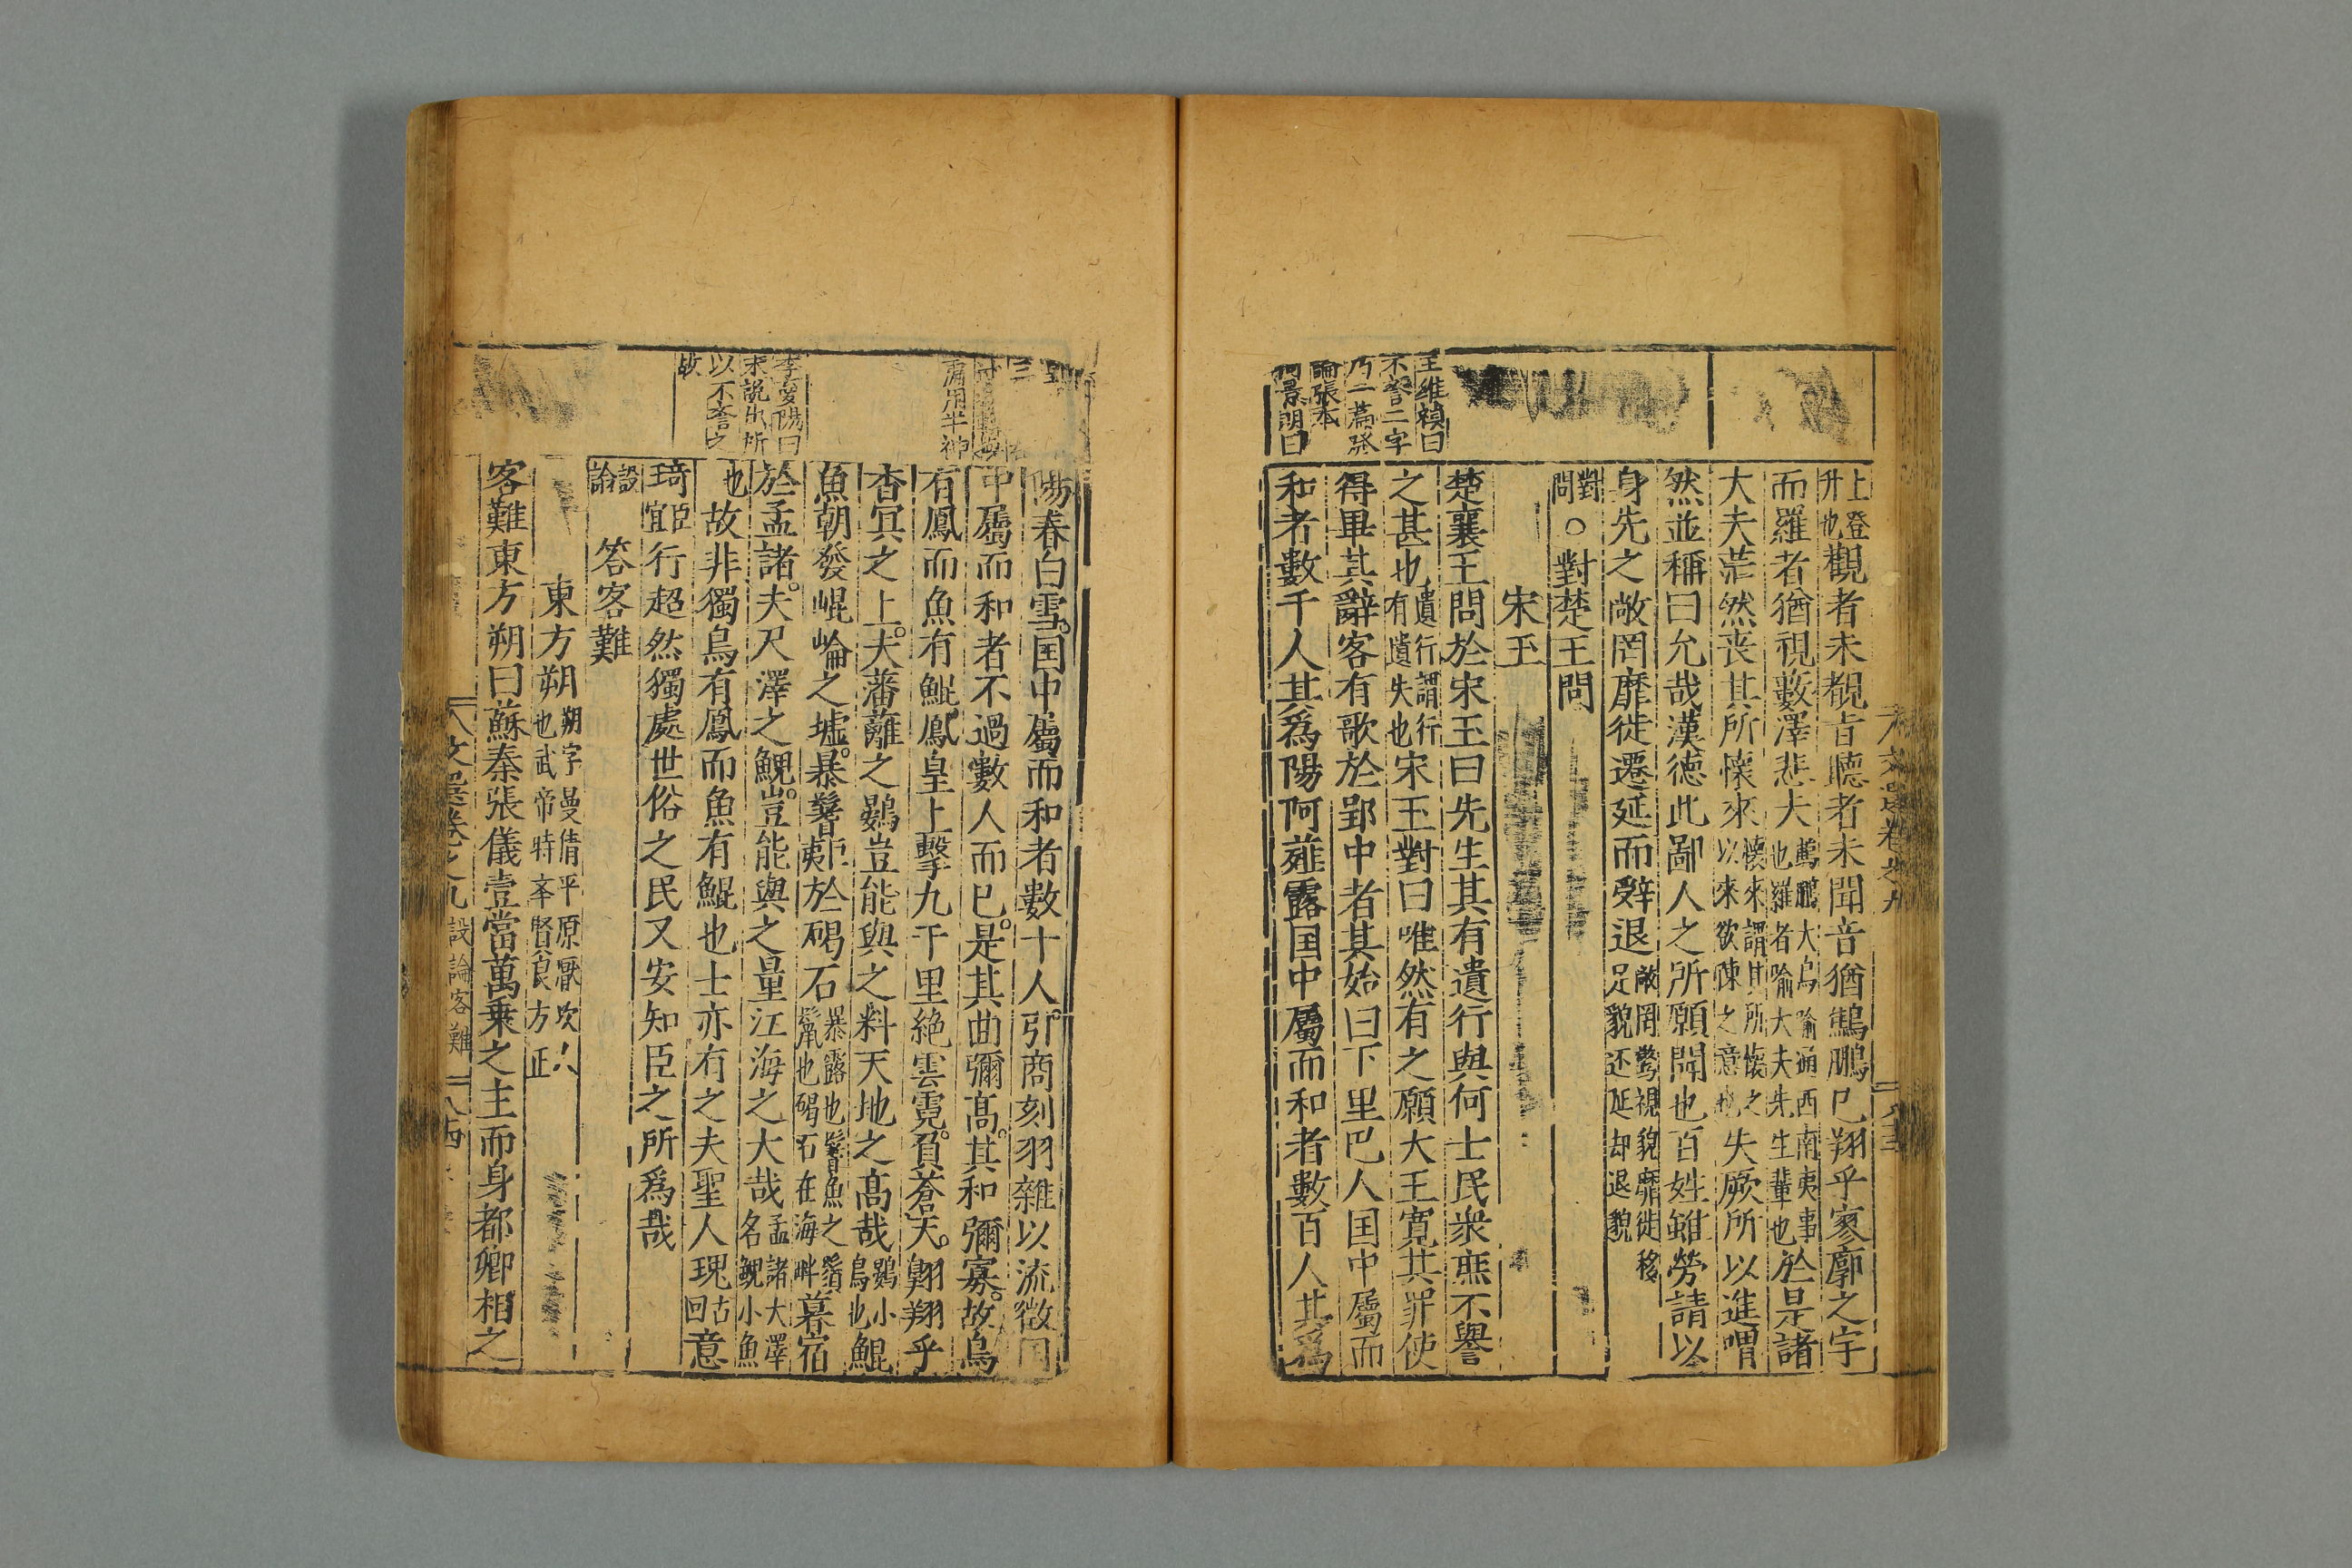 王維楨曰
不譽二字
乃一篇發
論張本
何景明曰
上登升也觀者未覩旨聽者未聞音猶鷦鵬已翔乎寥廓之宇
而羅者猶視藪澤悲夫鷦鵬大鳥喻通西南夷事也羅者喻大夫先生輩也於是諸
大夫茫然丧其所懐來懐來謂其所懐之以來欲陳之意也失厥所以進喟
然並稱曰允哉漢德此鄙人之所願聞也百姓雖勞請以
身先之敞罔靡徙遷延而辤退敞罔驚視貌靡徙移足貌还延却退貌
對問○對楚王問
宋玉
楚襄王問於宋玉曰先生其有遺行與何士民衆庶不譽
之甚也遺行謂行有遺失也宋玉對曰唯然有之願大王寛其罪使
得畢其辭客有歌於郢中者其始曰下里巴人囯中屬而
和者數千人其爲陽阿薤露囯中屬而和者數百人其爲
李夢陽曰
末說出所
以不譽之
故
陽春白雪囯中屬而和者數十人引商刻羽雜以流徵囯
中屬而和者不過數人而已是其曲彌髙其和彌寡故鳥
有鳳而魚有鯤鳳皇上擊九千里絶雲霓負蒼天翺翔乎
杳冥之上夫藩蘺之鷃豈能與之料天地之髙哉鷃小鳥也鯤
魚朝發崐崘之墟暴鬐巨夷於碣石暴露也鬐魚之鬚鬣也碣石在海畔暮宿
於孟諸夫尺澤之鯢豈能與之量江海之大哉孟諸大澤名鯢小魚
也故非獨鳥有鳳而魚有鯤也士亦有之夫聖人瑰古回意
琦臣宜行超然獨處世俗之民又安知臣之所爲哉
設論
答客難
東方朔朔字曼倩平原厭次人也武帝特奉賢良方正
客難東方朔曰蘇秦張儀壹當萬乗之主而身都卿相之
文選卷之九 設論客難